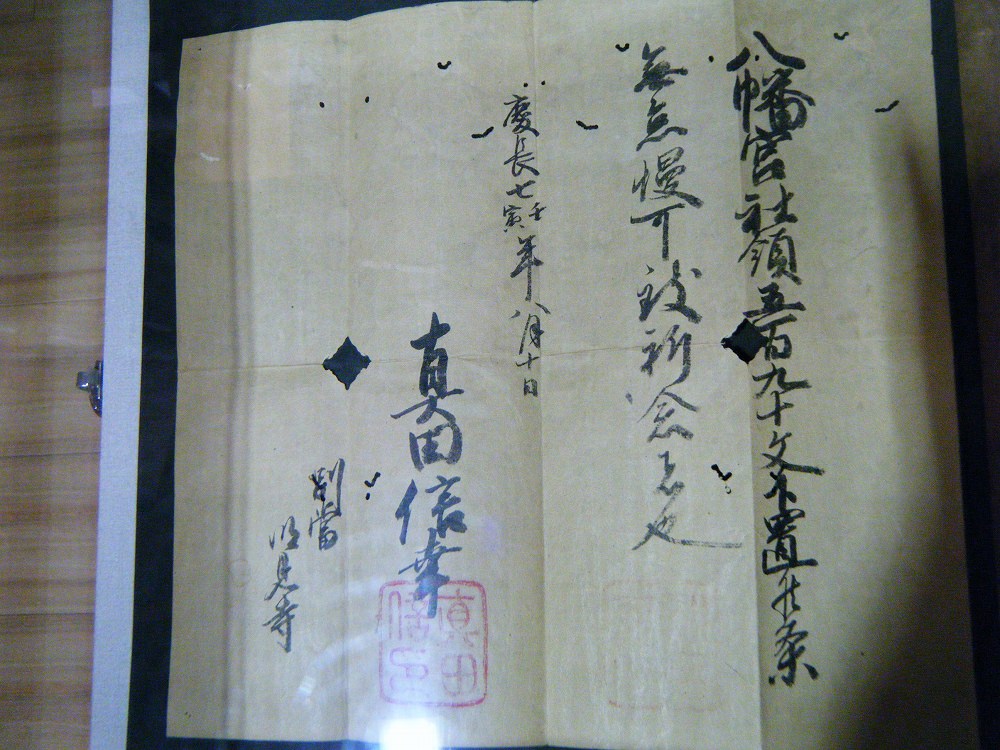 八幡宮社領五百九十文令置出条
無怠慢可致祈念者也
慶長七壬寅年八月十日
真田信幸
真田信印
別當
明見寺